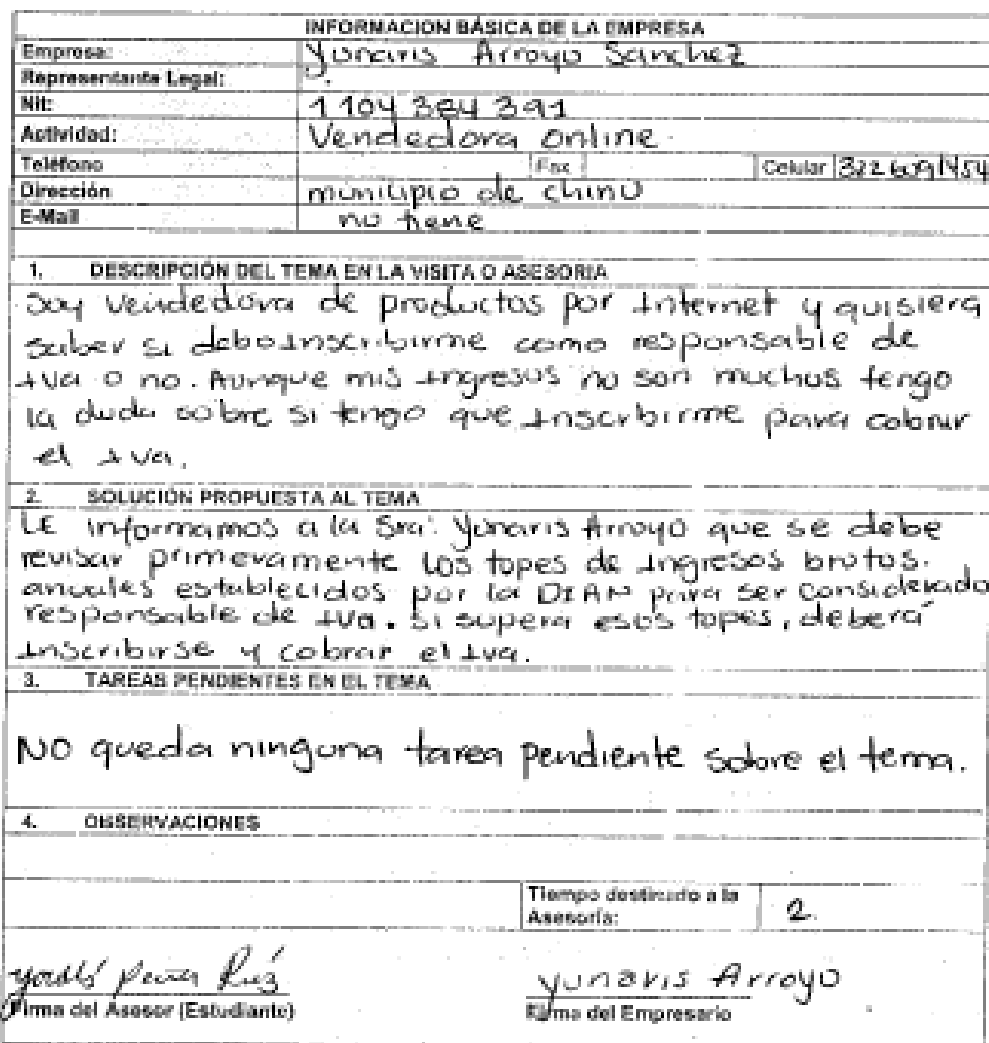 INFORMACION BÁSICA DE LA EMPRESA
Empresa: Yunaris Arroyo Sanchez
Representante Legal:
Nit: 1104 384 391
Actividad: Vendedora online
Teléfono Fax Celular
Dirección municipio de chinú
E-Mail no tiene
1. DESCRIPCIÓN DEL TEMA EN LA VISITA O ASESORIA
Soy vendedora de productos por Internet y quisiera
saber si debo Inscribirme como responsable de
Iva o no. Aunque mis Ingresos no son muchos tengo
la duda sobre si tengo que Inscribirme para cobrar
el Iva.
2. SOLUCIÓN PROPUESTA AL TEMA
LE informamos a la Sra: Yunaris Arroyo que se debe
revisar primeramente los topes de Ingresos brutos.
anuales establecidos por la DIAN para ser considerado
responsable de Iva. si supera esos topes, deberá
Inscribirse y cobrar el Iva.
3. TAREAS PENDIENTES EN EL TEMA
NO queda ninguna tarea pendiente sobre el tema.
4. OBSERVACIONES
Tiempo destinado a la
Asesoría: 2
Yunaris Arroyo
Firma del Asesor (Estudiante) Firma del Empresario